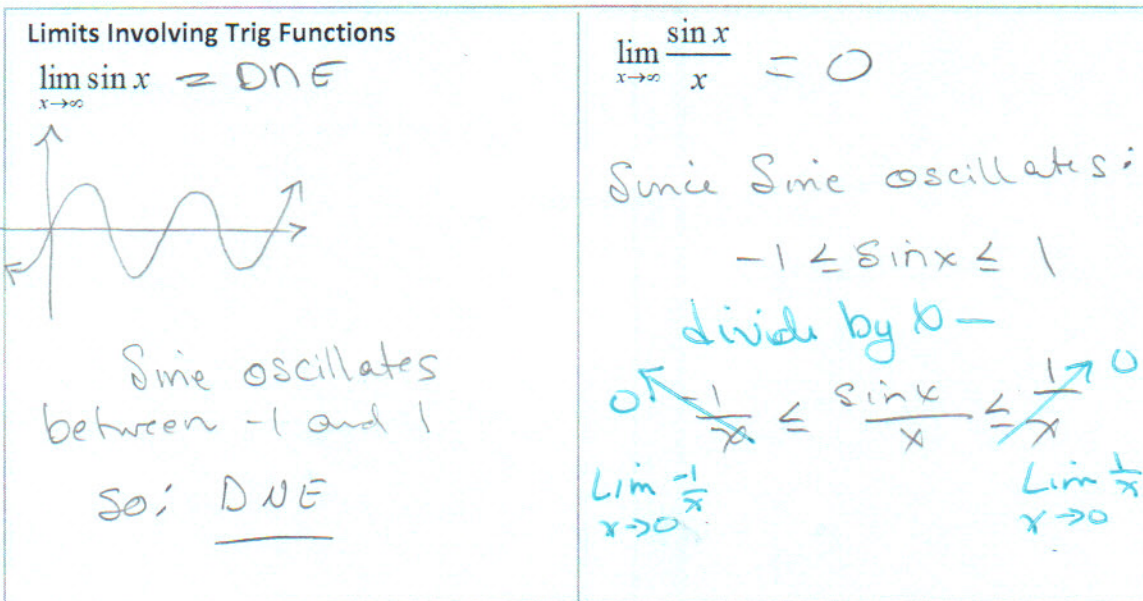 Limits Involving Trig Functions
lim sin x = DNE
x→∞
Sine oscillates
between -1 and 1
So: DNE
lim sin x / x = 0
x→∞
Since Sine oscillates:
-1 ≤ Sinx ≤ 1
divide by x –
0 -1/x ≤ sinx/x ≤ 1/x 0
Lim -1/x Lim 1/x
x→0 x→0